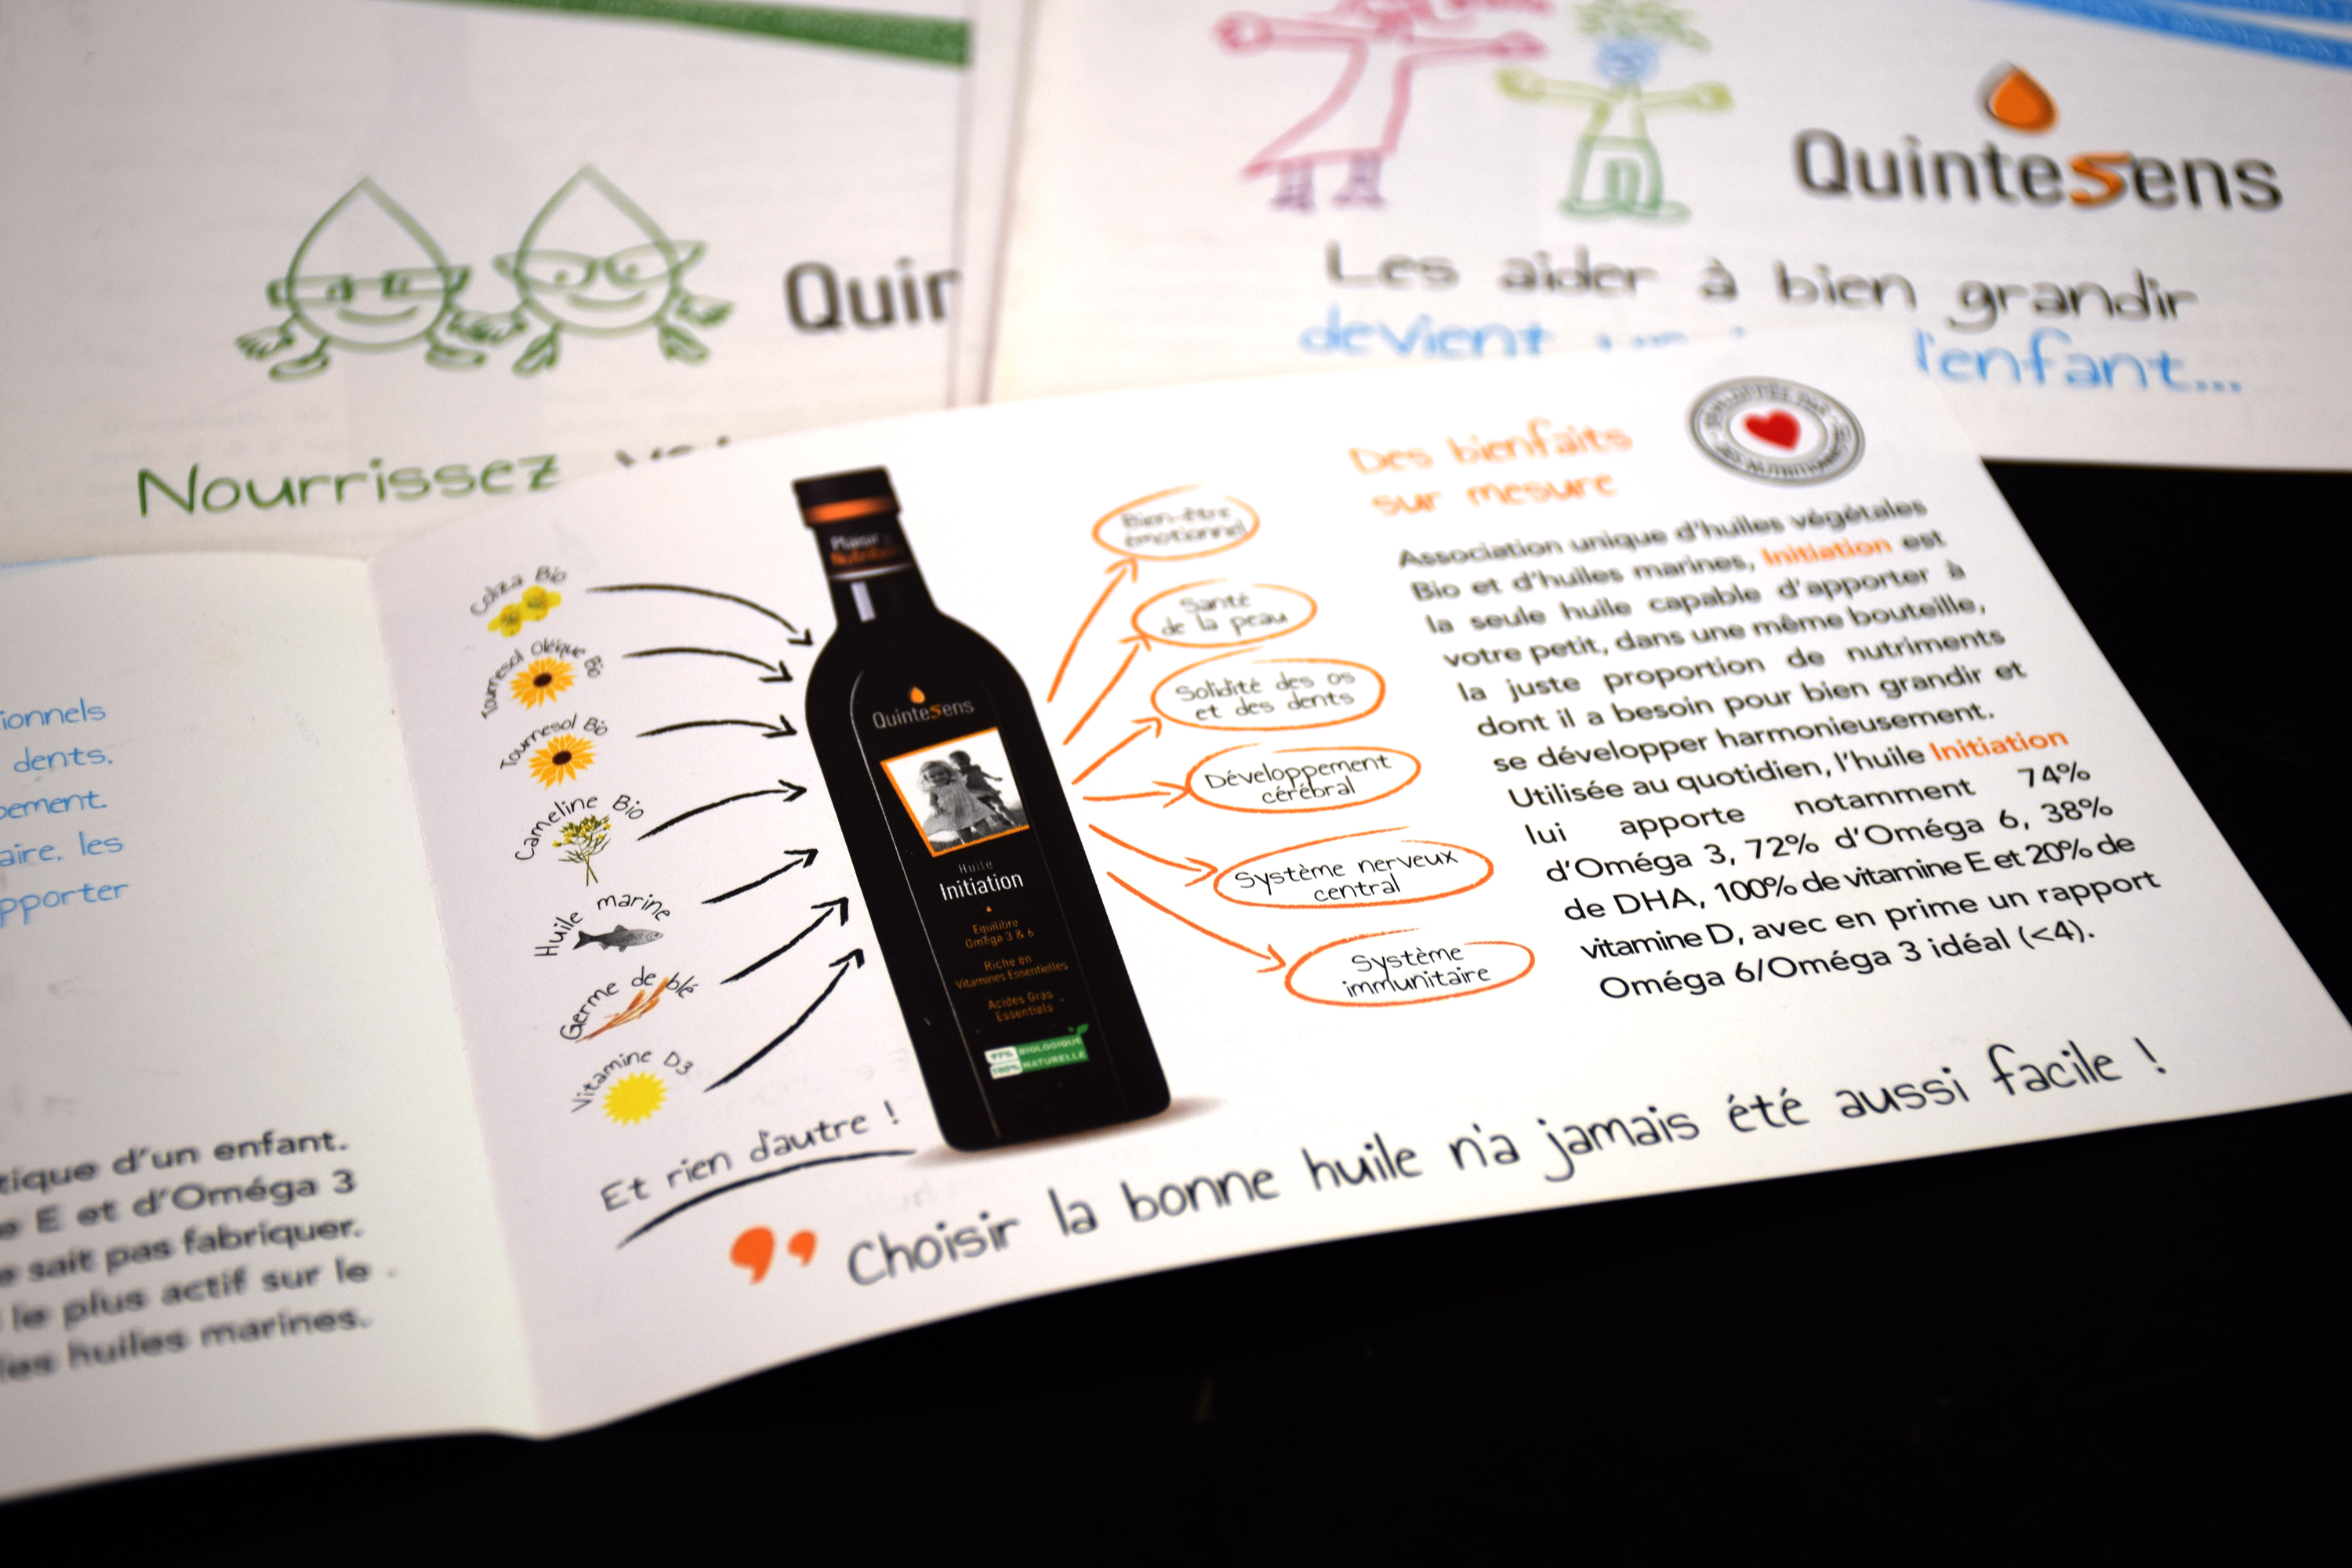 Quin
Nourrissez
QuinteSens
Les aider à bien grandir
devient
l'enfant...
ionnels
dents.
pement.
aire, les
pporter
tique d'un enfant.
e E et d'Oméga 3
e sait pas fabriquer.
le plus actif sur le
les huiles marines.
Colza Bio
Tournesol Oléique Bio
Tournesol Bio
Cameline Bio
Huile marine
Germe de blé
Vitamine D3
Et rien d'autre !
Plaisir
Nutrition
QuinteSens
Huile
Initiation
Equilibre
Oméga 3 & 6
Riche en
Vitamines Essentielles
Acides Gras
Essentiels
97% BIOLOGIQUE
100% NATURELLE
Bien-être
émotionnel
Santé
de la peau
Solidité des os
et des dents
Développement
cérébral
Système nerveux
central
Système
immunitaire
Des bienfaits
sur mesure
Association unique d'huiles végétales
Bio et d'huiles marines, Initiation est
la seule huile capable d'apporter à
votre petit, dans une même bouteille,
la juste proportion de nutriments
dont il a besoin pour bien grandir et
se développer harmonieusement.
Utilisée au quotidien, l'huile Initiation
lui apporte notamment 74%
d'Oméga 3, 72% d'Oméga 6, 38%
de DHA, 100% de vitamine E et 20% de
vitamine D, avec en prime un rapport
Oméga 6/Oméga 3 idéal (<4).
Choisir la bonne huile n'a jamais été aussi facile !